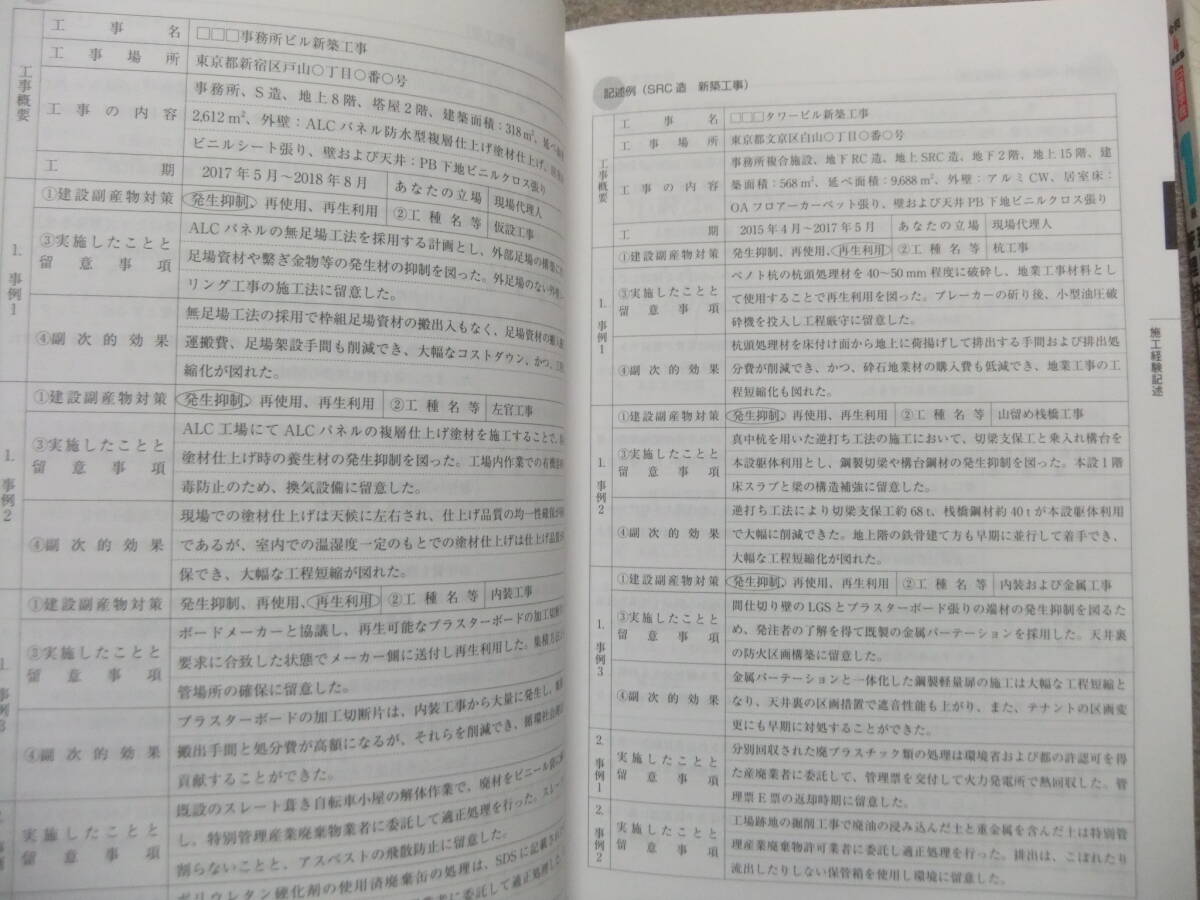 工事概要
工事名 □□□事務所ビル新築工事
工事場所 東京都新宿区戸山○丁目○番○号
工事の内容
事務所、S造、地上8階、塔屋2階、建築面積:318m²、延べ面積
2,612m²、外壁:ALCパネル防水型複層仕上げ塗材仕上げ、
ビニルシート張り、壁および天井:PB下地ビニルクロス張り
工期 2017年5月~2018年8月 あなたの立場 現場代理人
1. 事例1
①建設副産物対策 発生抑制、再使用、再生利用 ②工種名等 仮設工事
③実施したことと留意事項
ALCパネルの無足場工法を採用する計画とし、外部足場の
足場資材や繋ぎ金物等の発生材の抑制を図った。外足場のない外壁
リング工事の施工法に留意した。
④副次的効果
無足場工法の採用で枠組足場資材の搬出入もなく、足場資材の搬入
運搬費、足場架設手間も削減でき、大幅なコストダウン、かつ、工程
縮化が図れた。
1. 事例2
①建設副産物対策 発生抑制、再使用、再生利用 ②工種名等 左官工事
③実施したことと留意事項
ALC工場にてALCパネルの複層仕上げ塗材を施工することで、
塗材仕上げ時の養生材の発生抑制を図った。工場内作業での有機
毒防止のため、換気設備に留意した。
④副次的効果
現場での塗材仕上げは天候に左右され、仕上げ品質の均一性確保が
であるが、室内での温湿度一定のもとでの塗材仕上げは仕上げ品質
保でき、大幅な工程短縮が図れた。
1. 事例3
①建設副産物対策 発生抑制、再使用、再生利用 ②工種名等 内装工事
③実施したことと留意事項
ボードメーカーと協議し、再生可能なプラスターボードの加工切断
要求に合致した状態でメーカー側に送付し再生利用した。集積方法
管場所の確保に留意した。
④副次的効果
プラスターボードの加工切断片は、内装工事から大量に発生し、
搬出手間と処分費が高額になるが、それらを削減でき、循環社会
貢献することができた。
実施したことと留意事項
既設のスレート葺き自転車小屋の解体作業で、廃材をビニール袋に
し、特別管理産業廃棄物業者に委託して適正処理を行った。スレー
割らないことと、アスベストの飛散防止に留意した。
ポリウレタン硬化剤の使用済廃棄缶の処理は、SDSに記載され
産業廃棄物業者に委託して適正処理
記述例(SRC造 新築工事)
工事概要
工事名 □□□タワービル新築工事
工事場所 東京都文京区白山○丁目○番○号
工事の内容
事務所複合施設、地下RC造、地上SRC造、地下2階、地上15階、建
築面積:568m²、延べ面積:9,688m²、外壁:アルミCW、居室床:
OAフロアーカーペット張り、壁および天井PB下地ビニルクロス張り
工期 2015年4月~2017年5月 あなたの立場 現場代理人
1. 事例1
①建設副産物対策 発生抑制、再使用、再生利用 ②工種名等 杭工事
③実施したことと留意事項
ベノト杭の杭頭処理材を40~50mm程度に破砕し、地業工事材料とし
て使用することで再生利用を図った。ブレーカーの斫り後、小型油圧破
砕機を投入し工程厳守に留意した。
④副次的効果
杭頭処理材を床付け面から地上に荷揚げして排出する手間および排出処
分費が削減でき、かつ、砕石地業材の購入費も低減でき、地業工事の工
程短縮化も図れた。
1. 事例2
①建設副産物対策 発生抑制、再使用、再生利用 ②工種名等 山留め桟橋工事
③実施したことと留意事項
真中杭を用いた逆打ち工法の施工において、切梁支保工と乗入れ構台を
本設躯体利用とし、鋼製切梁や構台鋼材の発生抑制を図った。本設1階
床スラブと梁の構造補強に留意した。
④副次的効果
逆打ち工法により切梁支保工約68t、桟橋鋼材約40tが本設躯体利用
で大幅に削減できた。地上階の鉄骨建て方も早期に並行して着手でき、
大幅な工程短縮化が図れた。
1. 事例3
①建設副産物対策 発生抑制、再使用、再生利用 ②工種名等 内装および金属工事
③実施したことと留意事項
間仕切り壁のLGSとプラスターボード張りの端材の発生抑制を図るた
め、発注者の了解を得て既製の金属パーテーションを採用した。天井裏
の防火区画構築に留意した。
④副次的効果
金属パーテーションと一体化した鋼製軽量扉の施工は大幅な工程短縮と
なり、天井裏の区画措置で遮音性能も上がり、また、テナントの区画変
更にも早期に対処することができた。
2. 事例1
実施したことと留意事項
分別回収された廃プラスチック類の処理は環境省および都の許認可を得
た産廃業者に委託して、管理票を交付して火力発電所で熱回収した。管
理票E票の返却時期に留意した。
2. 事例2
実施したことと留意事項
工場跡地の掘削工事で廃油の浸み込んだ土と重金属を含んだ土は特別管
理産業廃棄物許可業者に委託し適正処理を行った。排出は、こぼれたり
流出したりしない保管箱を使用し環境に留意した。
施工経験記述